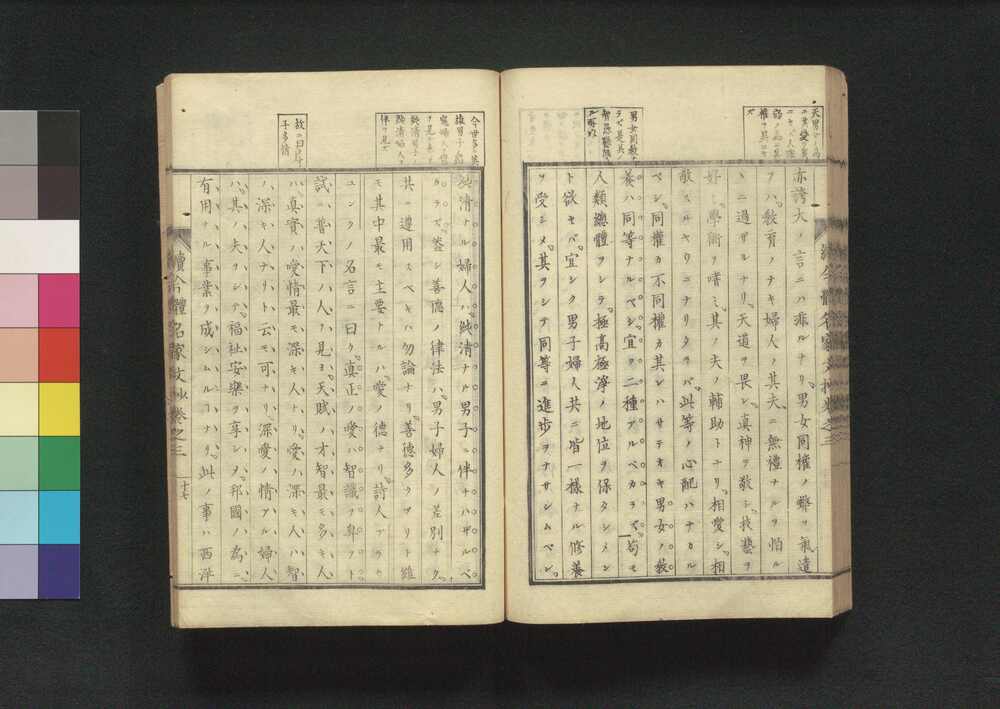 亦誇大ノ言ニハ非ルナリ、男女同權ノ弊ヲ氣遣
フハ、敎育ノナキ婦人ノ其夫ニ無禮ナルヲ怕ル
ヽニ過ザルナリ、天道ヲ畏レ、眞神ヲ敬シ、技藝ヲ
好ミ、學術ヲ嗜ミ、其ノ夫ノ輔助トナリ、相愛シ、相
敬スルヤウニナリタラバ、此等ノ心配ハナカル
ベシ、同權カ不同權カ其レハサテオキ男女ノ敎
養ハ同等ナルベシ、宜ク二種アルベカラズ、苟モ
人類總體ヲシテ、極高極淨ノ地位ヲ保タシメン
ト欲セバ、宜シク男子婦人共ニ皆一樣ナル修養
ヲ受シメ、其ヲシテ同等ニ進歩ヲナサシムベシ、
男女同敎
純清ナル婦人ハ、純清ナル男子ニ伴ナハザルベ
カラズ、蓋シ善德ノ律法ハ、男子婦人ノ差別ナク、
其ニ遵用スベキハ勿論ナリ、善德多シト雖
モ其中最モ主要トルハ、愛ノ德ナリ、詩人
ユングノ名言ニ曰ク、眞正ノ愛ハ智識ヲ鼻フト
試ニ普天下ノ人ヲ見ヨ、天賦ノ才智最モ多キ人
ハ、眞實ハ愛情最モ深キ人ナリ、愛ノ深キ人ハ智
ノ深キ人ナリト云モ可ナリ、深愛ノ情アル婦人
ハ、其ノ夫ヲシテ、福祉安樂ヲ享シメ、邦國ノ爲ニ、
有用ナル事業ヲ成シムルコトナリ、此ノ事ハ西洋
故ニ曰
子多情
續今體名家文抄卷之三
十七